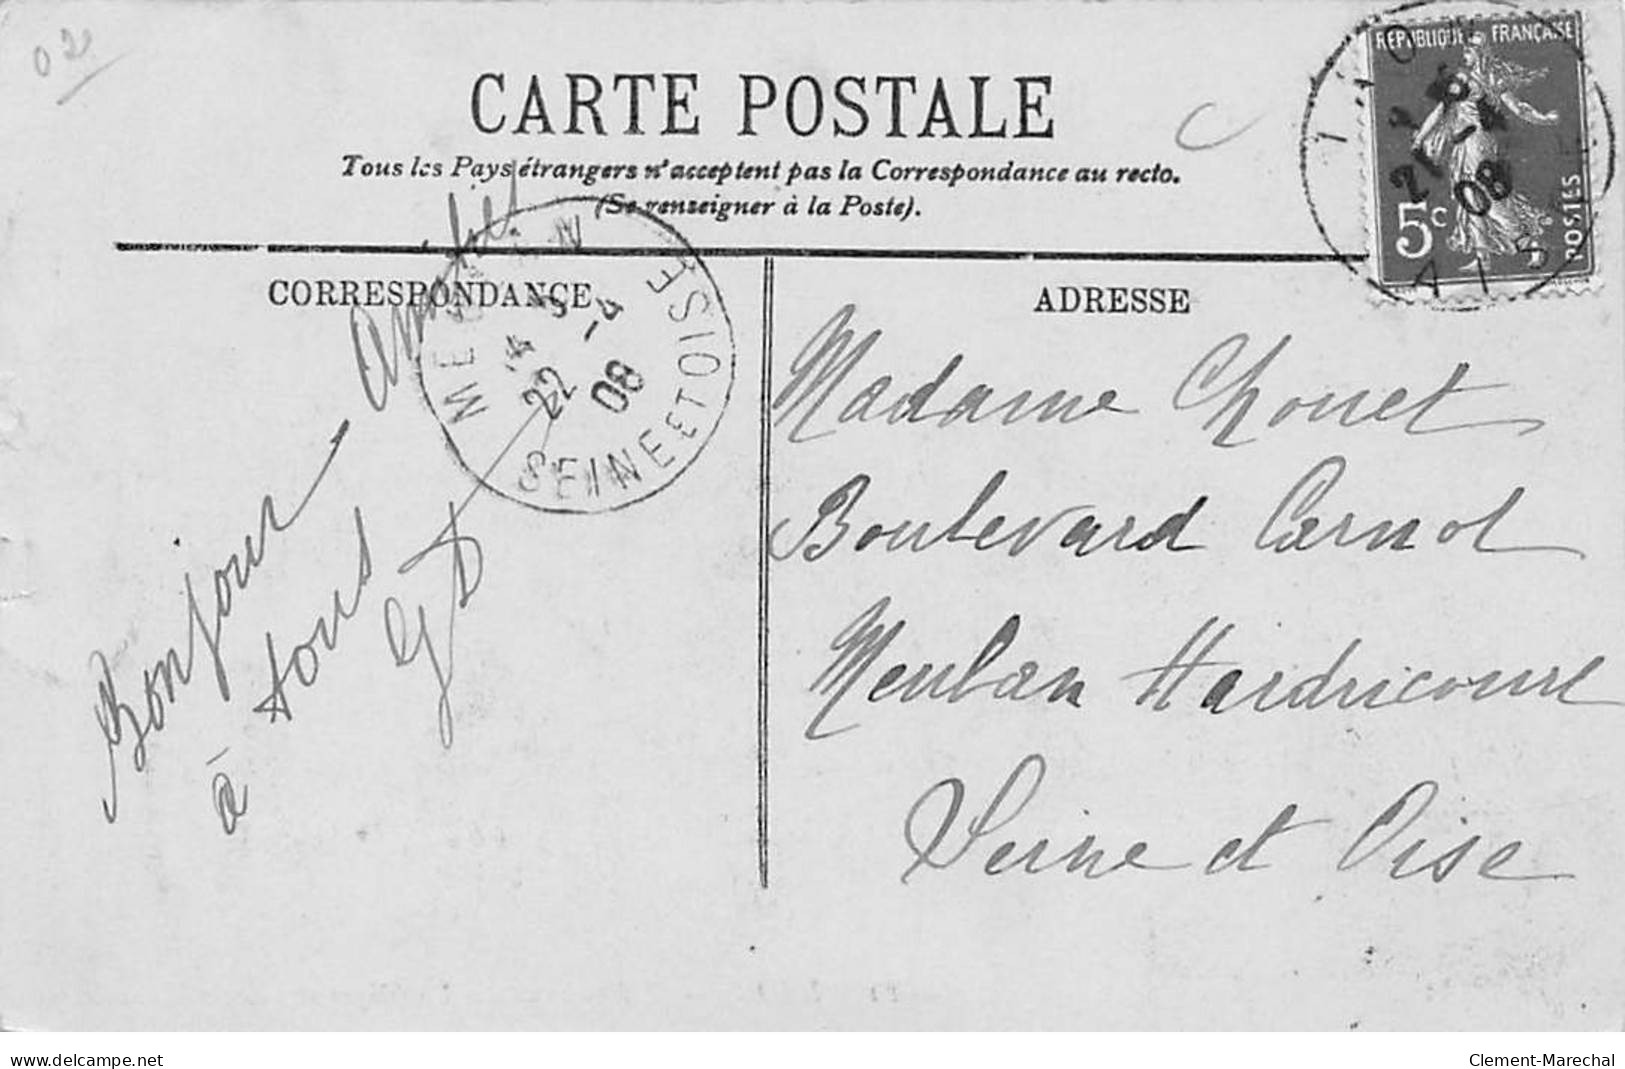 02
CARTE POSTALE
Tous les Pays étrangers n'acceptent pas la Correspondance au recto.
(Se renseigner à la Poste).
REPUBLIQUE FRANÇAISE
21 -4
08
5c
POSTES
CORRESPONDANCE
ADRESSE
SEINE ET OISE
22 -4
08
Bonjour Amitiés
à tous
Madame Chouet
Boulevard Carnot
Meulan Hardricourt
Seine et Oise
www.delcampe.net
Clement-Marechal